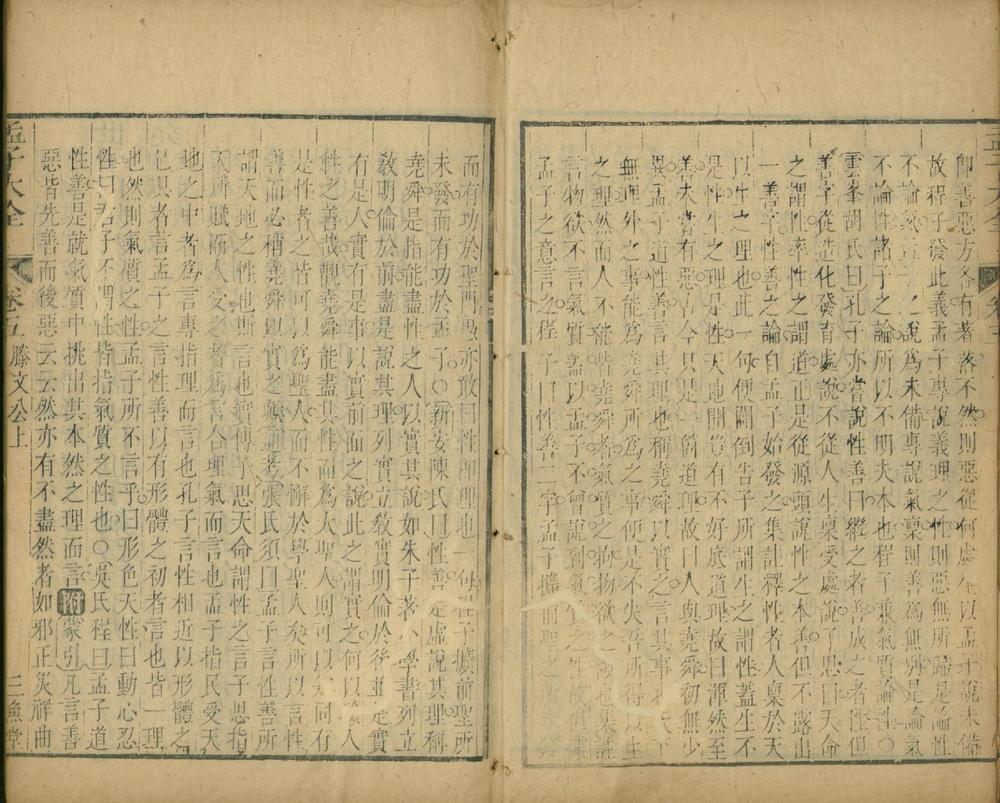 卽善惡方各有著落不然則惡從何處生以孟子說未備
故程子發此義孟子專說義理之性則惡無所歸是論性
不論氣之說為未備專說氣稟則善為無別是論氣
不論性諸子之論所以不明夫本也程子兼氣質論性○
雲峯胡氏曰孔子亦嘗說性善曰繼之者善成之者性但
善字從造化發育處說不從人生稟受處說子思曰天命
之謂性率性之謂道正是從源頭說性之本善但不露出
一善字性善之論自孟子始發之集註釋性者人稟於天
以生之理也此一句便闢倒告子所謂生之謂性蓋生不
是性生之理是性天地間豈有不好底道理故曰渾然至
善未嘗有惡古今只是一箇道理故曰人與堯舜初無少
異孟子道性善言其理也稱堯舜以實之言其事也天下
無理外之事能為堯舜所為之事便是不失吾所得以生
之理然而人不能皆堯舜者氣質之拘物欲之蔽也集註
言物欲不言氣質蓋以孟子不曾說到氣質之性故但據
孟子之意言之程子曰性善二字孟子擴前聖之所未發
而有功於聖門愚亦敢曰性卽理也一句程子擴前聖所
未發而有功於孟子○新安陳氏曰性善是虛說其理稱
堯舜是指能盡性之人以實其說如朱子著小學書列立
敎明倫於前盡是說其理列實立敎實明倫於後並是實
有是人實有是事以實前面之說此之謂實之何以
性之善哉觀堯舜能盡其性而為大聖人則可以知同有
是性者之皆可以為聖人而不懈於學聖人矣所以言性
善而必稱堯舜以實之歟通考張氏須曰孟子言性善所
謂天地之性也斯言也實傳子思天命謂性之言子思指
天所賦而人受之者為言合理氣而言也孟子指民受天
地之中者為言專指理而言也孔子言性相近以形體之
已具者言孟子之言性善以有形體之初者言也皆一理
也然則氣質之性孟子所不言乎曰形色天性曰動心忍
性曰君子不謂性皆指氣質之性也○吳氏程曰孟子道
性善是就氣質中挑出其本然之理而言附蒙引凡言善
惡皆先善而後惡云云然亦有不盡然者如邪正災祥曲
孟子大全
卷五
滕文公上
三魚堂